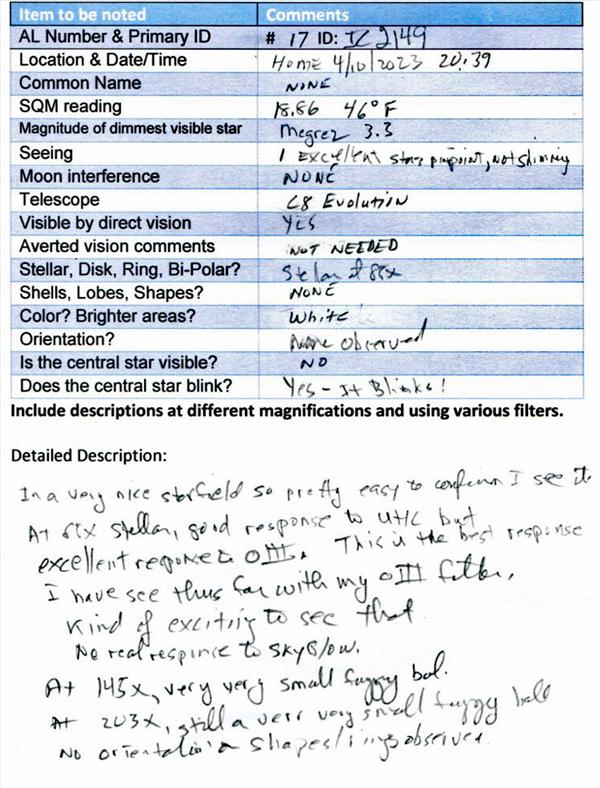 Item to be noted Comments
AL Number & Primary ID # 17 ID: IC 2149
Location & Date/Time Home 4/10/2023 20:39
Common Name NONE
SQM reading 18.86 46°F
Magnitude of dimmest visible star Megrez 3.3
Seeing 1 Excellent stars pinpoint, not shimring
Moon interference NONE
Telescope C8 Evolution
Visible by direct vision YES
Averted vision comments NOT NEEDED
Stellar, Disk, Ring, Bi-Polar? Stelar at 81x
Shells, Lobes, Shapes? NONE
Color? Brighter areas? White
Orientation? None observed
Is the central star visible? NO
Does the central star blink? Yes - It Blinks!
Include descriptions at different magnifications and using various filters.
Detailed Description:
In a very nice starfield so pretty easy to confirm I see it
At 81x stellar, good response to UHC but
excellent response to OIII. This is the best response
I have see thus far with my OIII filter,
Kind of exciting to see that
No real response to SkyGlow.
At 145x, very very small fuzzy bal.
At 203x, still a very very small fuzzy ball
No orientation shapes/rings observed.